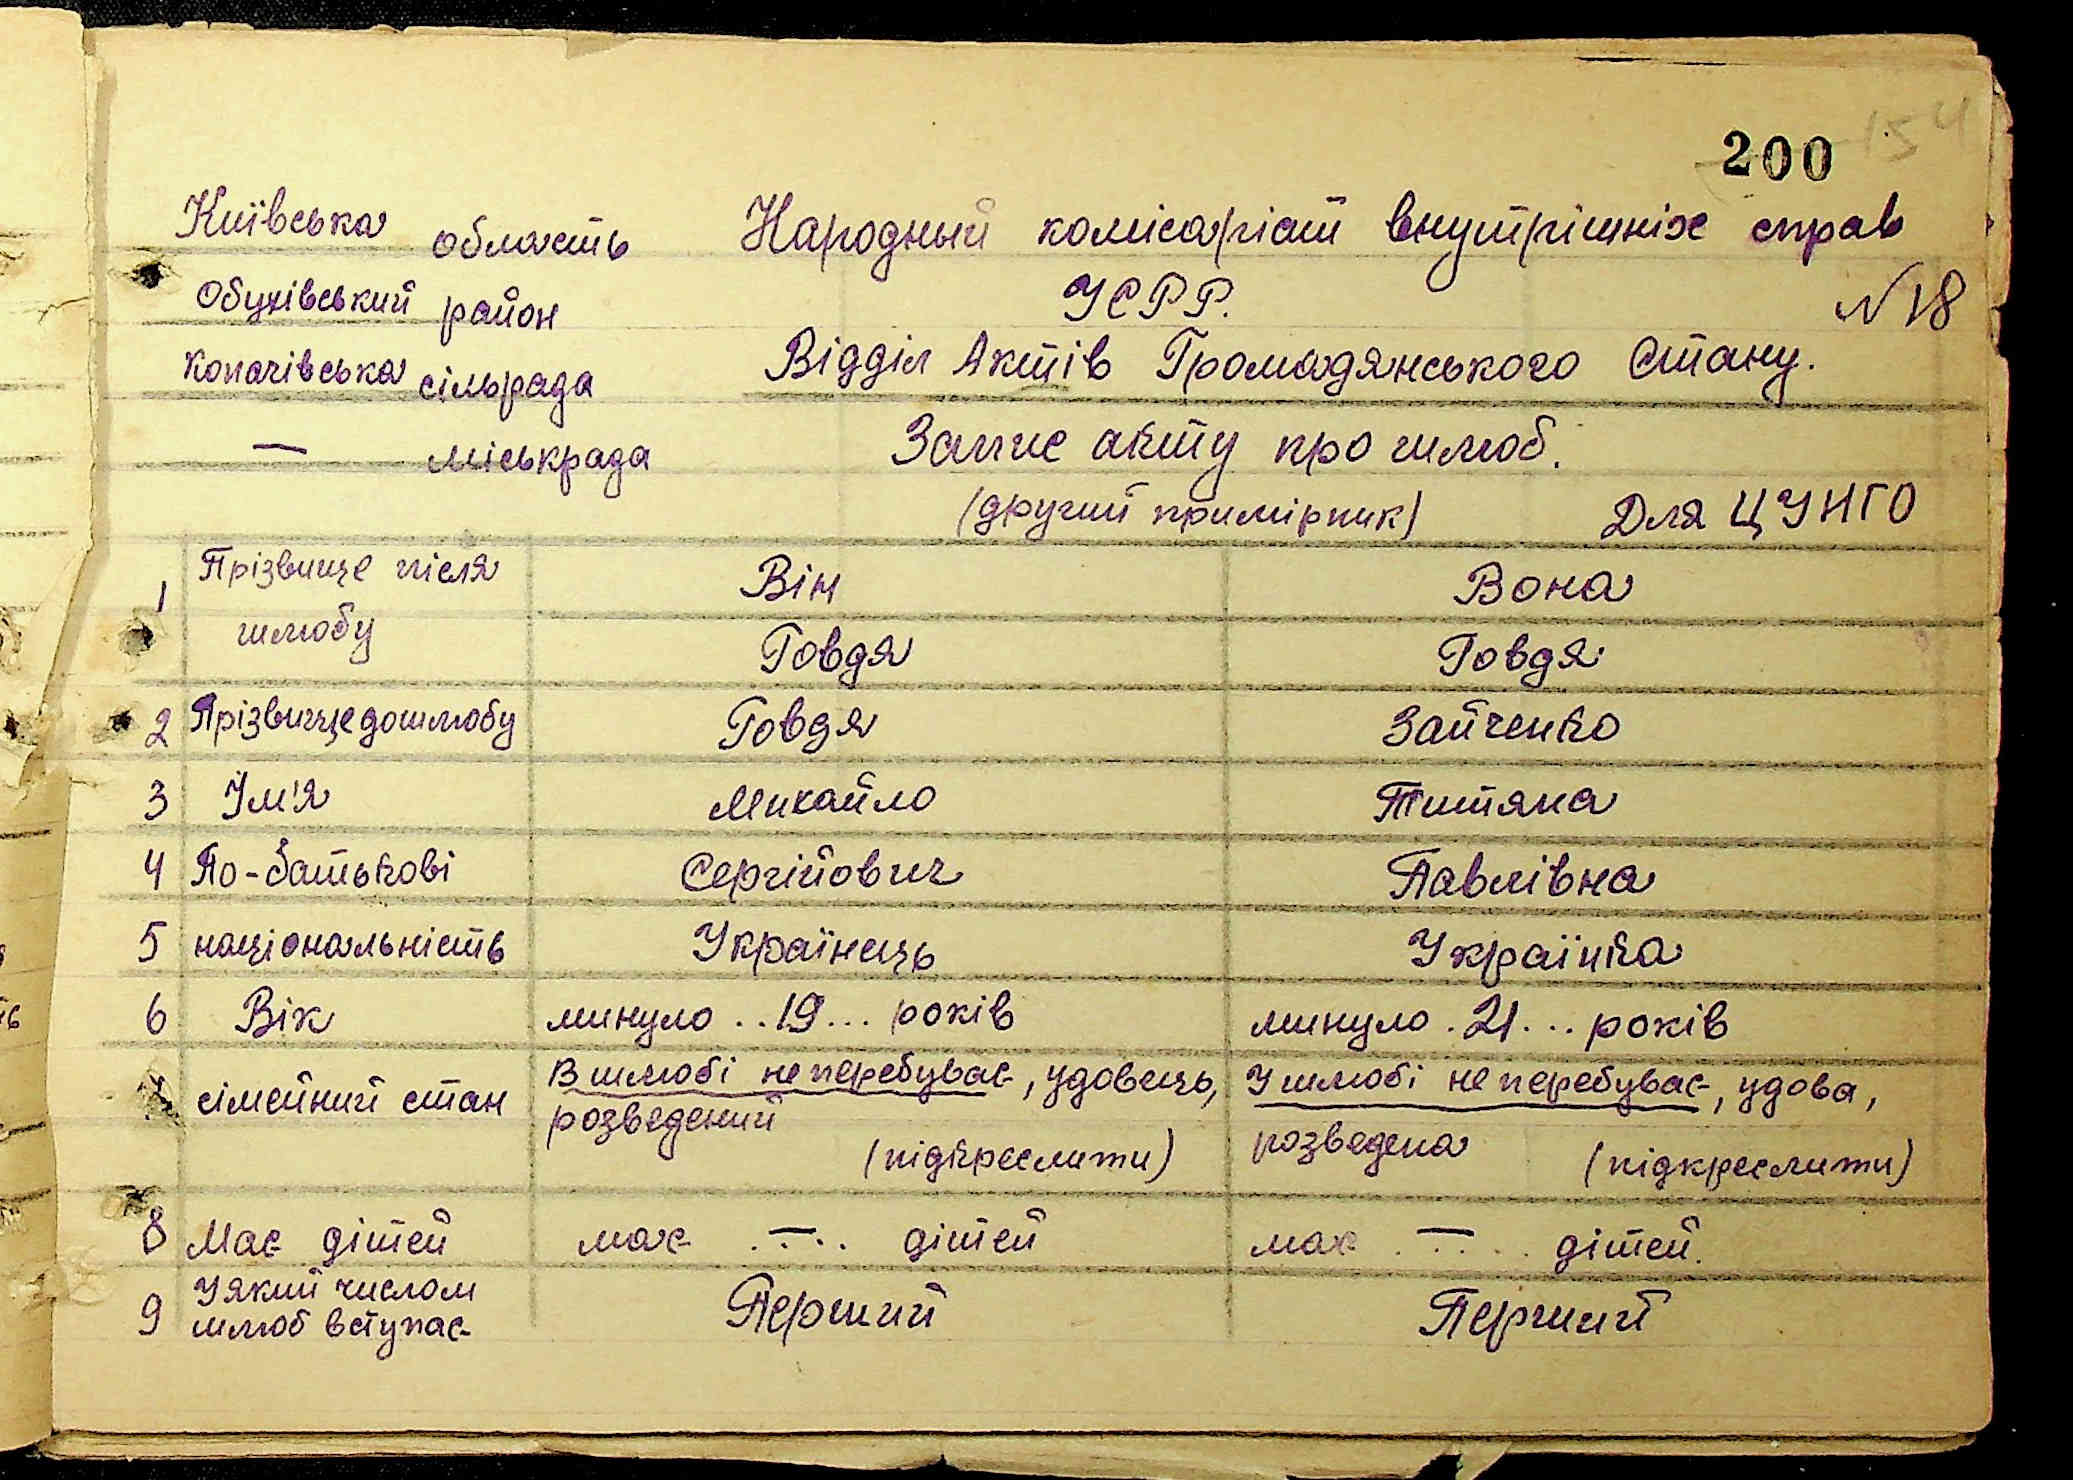 200 154
Київська область
Народный комісаріат внутрішніх справ
Обухівський район
УСРР.
N 18
Копачівська сільрада
Відділ Актів Громадянського Стану.
— міськрада
Запис акту про шлюб.
(другий примірник) Для ЦУНГО
1 Прізвище після шлюбу
Він Вона
Говдя Говдя
2 Прізвище до шлюбу Говдя Зайченко
3 Ім'я Михайло Титяна
4 По-батькові Сергійович Павлівна
5 національність Українець Українка
6 Вік минуло ..19... років минуло .21... років
сімейний стан
В шлюбі не перебуває, удовець, У шлюбі не перебуває, удова,
розведений розведена
(підкреслити) (підкреслити)
8 Має дітей має .—.. дітей має .—... дітей.
9 У який числом
шлюб вступає
Перший Перший